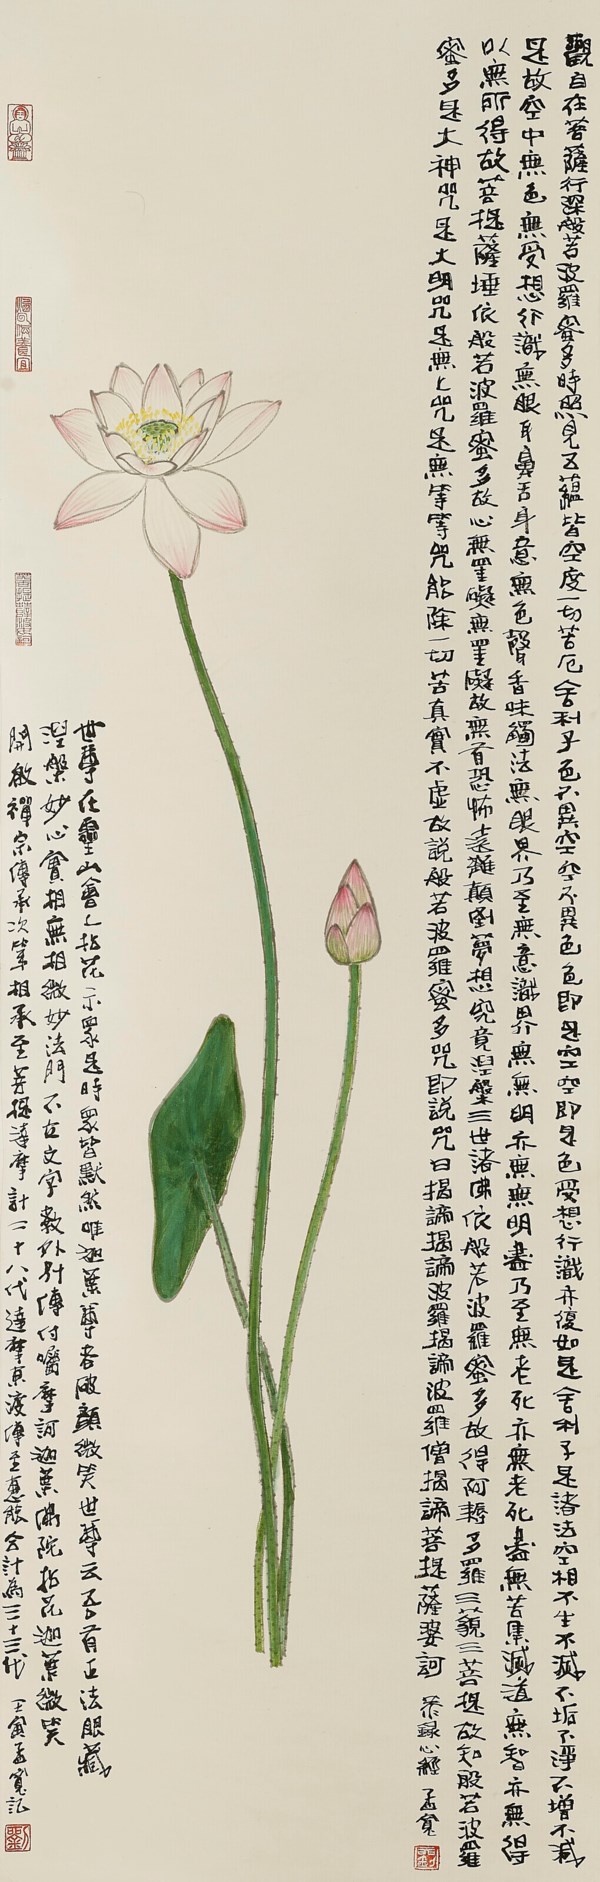 觀自在菩薩行深般若波羅蜜多時照見五蘊皆空度一切苦厄舍利子色不異空空不異色色即是空空即是色受想行識亦復如是舍利子是諸法空相不生不滅不垢不淨不增不減
是故空中無色無受想行識無眼耳鼻舌身意無色聲香味觸法無眼界乃至無意識界無無明亦無無明盡乃至無老死亦無老死盡無苦集滅道無智亦無得
以無所得故菩提薩埵依般若波羅蜜多故心無罣礙無罣礙故無有恐怖遠離顛倒夢想究竟涅槃三世諸佛依般若波羅蜜多故得阿耨多羅三藐三菩提故知般若波羅
蜜多是大神咒是大明咒是無上咒是無等等咒能除一切苦真實不虛故說般若波羅蜜多咒即說咒曰揭諦揭諦波羅揭諦波羅僧揭諦菩提薩婆訶 恭錄心經 孟寬
世尊在靈山會上拈花示眾是時眾皆默然唯迦葉尊者破顏微笑世尊云吾有正法眼藏
涅槃妙心實相無相微妙法門不立文字教外別傳付囑摩訶迦葉佛陀拈花迦葉微笑
開啟禪宗傳承次第相承至菩提達摩計二十八代達摩東渡傳至惠能合計為三十三代 壬寅孟寬記